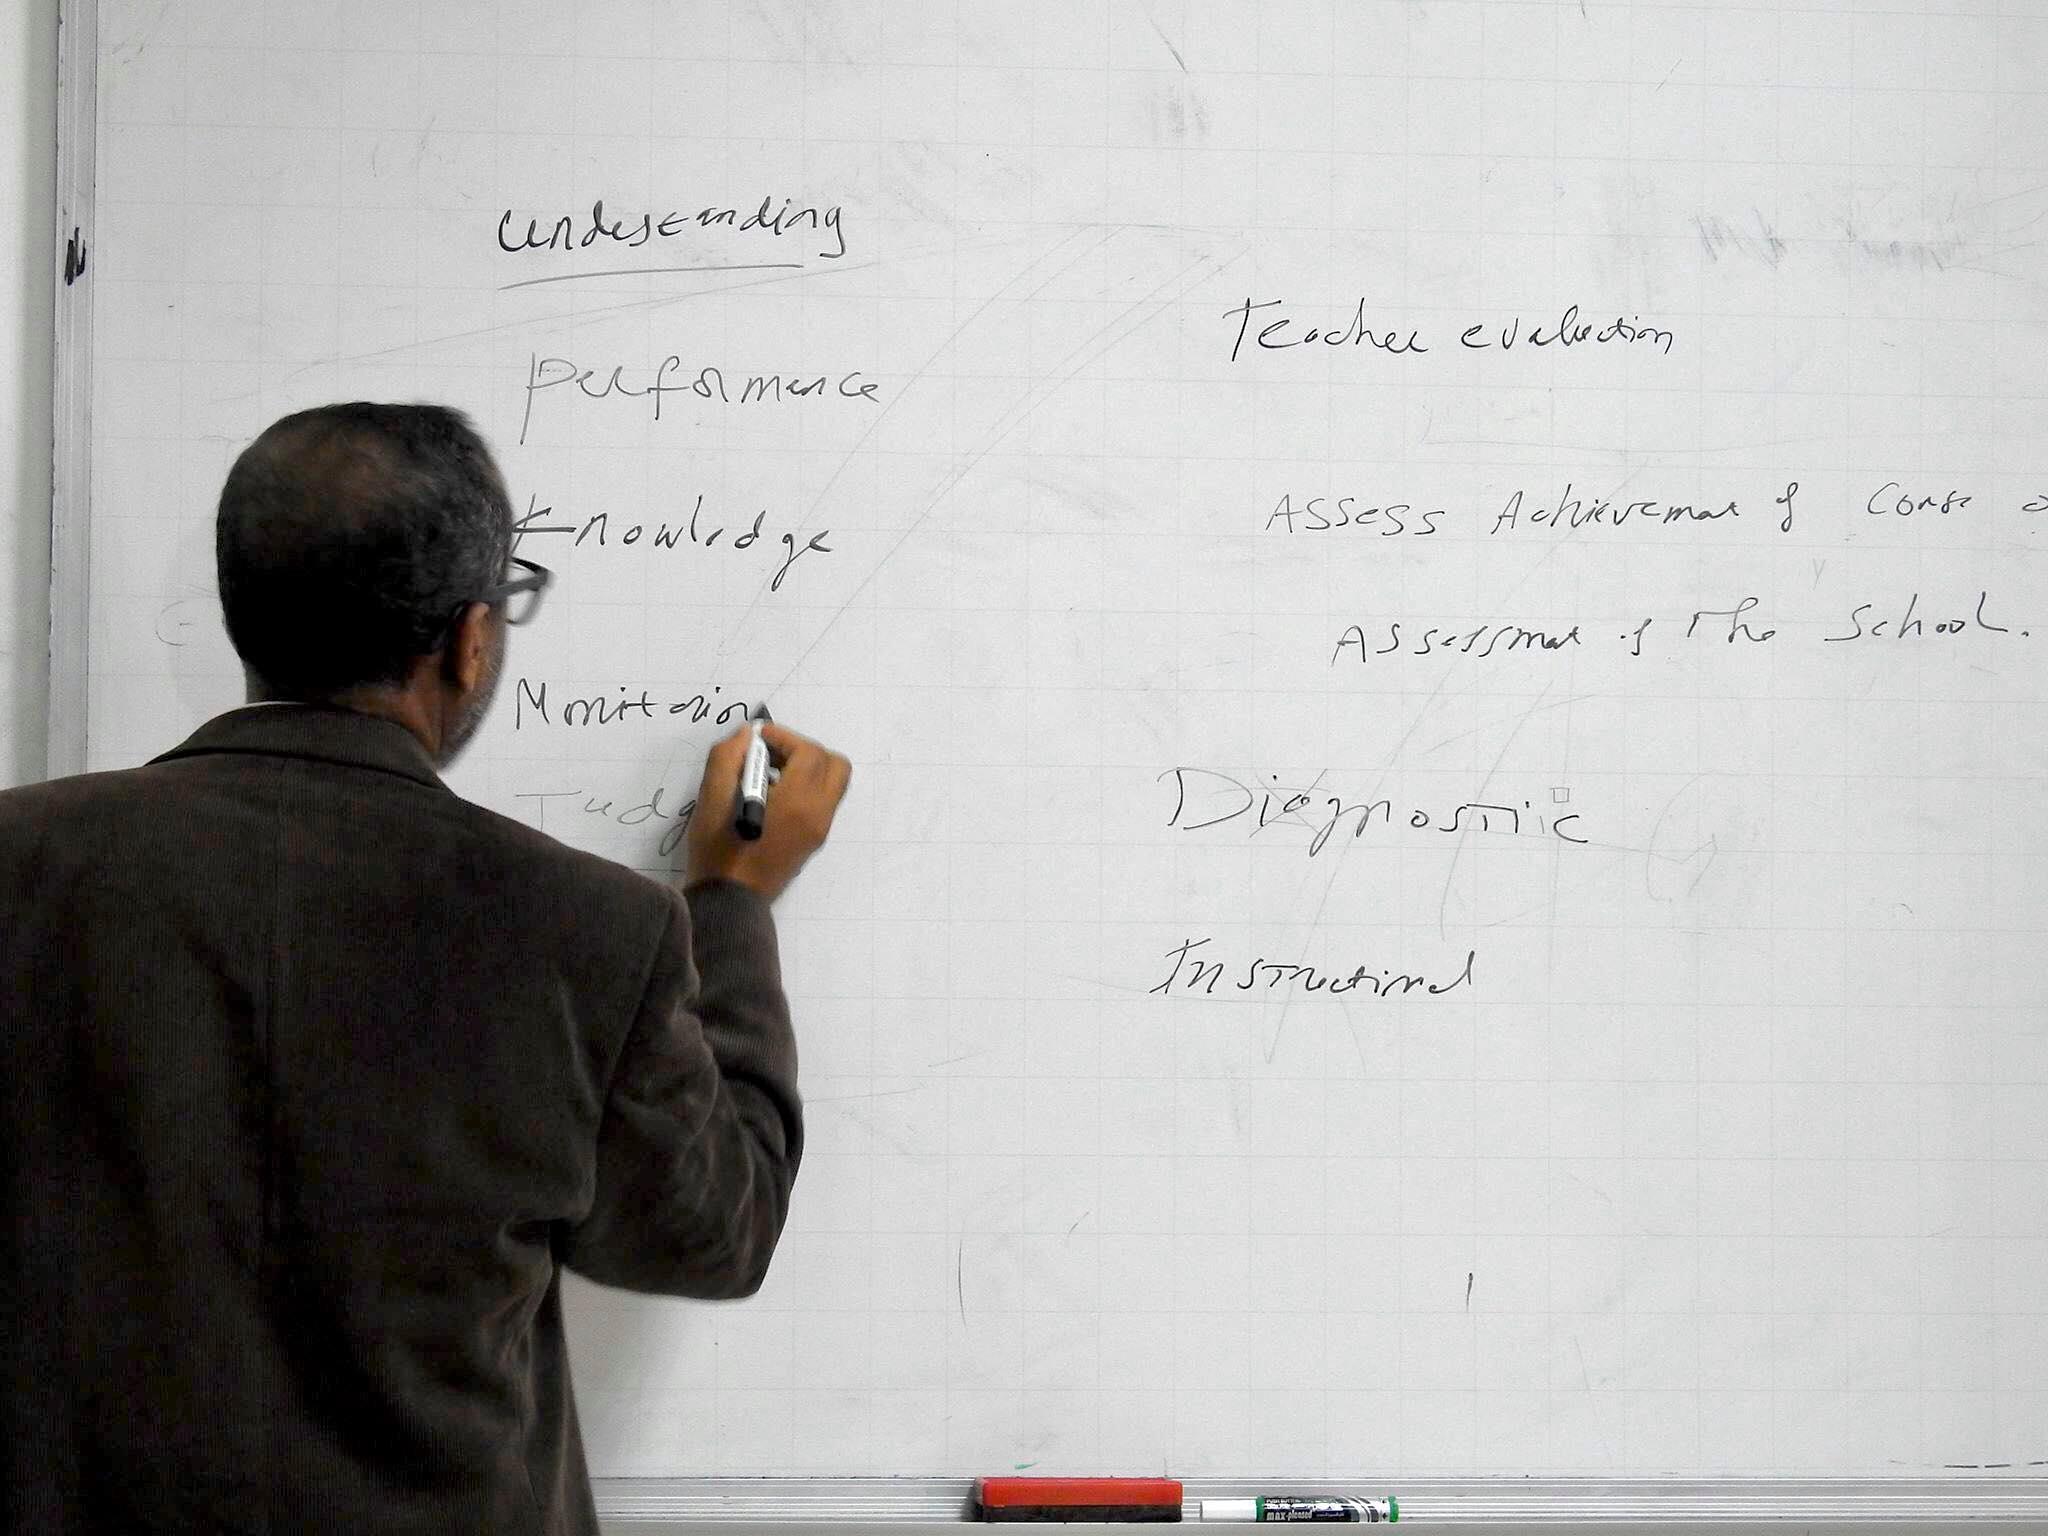 Understanding
Performance
Knowledge
Monitorin
Judg
Teacher evaluation
Assess Achievement of
Assessment of The School.
Diagnostic
Instructional
max-plented